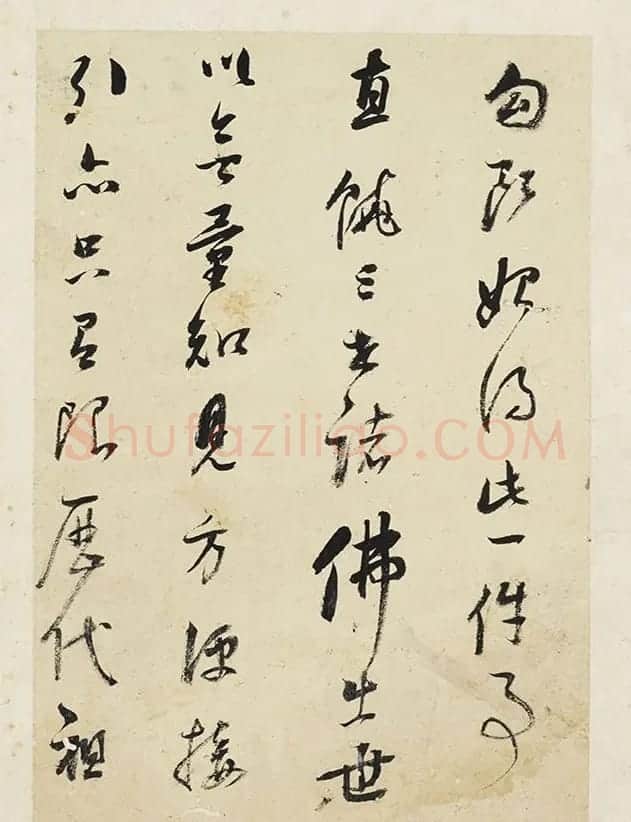 始得此一件事
直饒三世諸佛出世
以無量知見方便接
引亦只有限歷代祖
Shufaziliao.COM